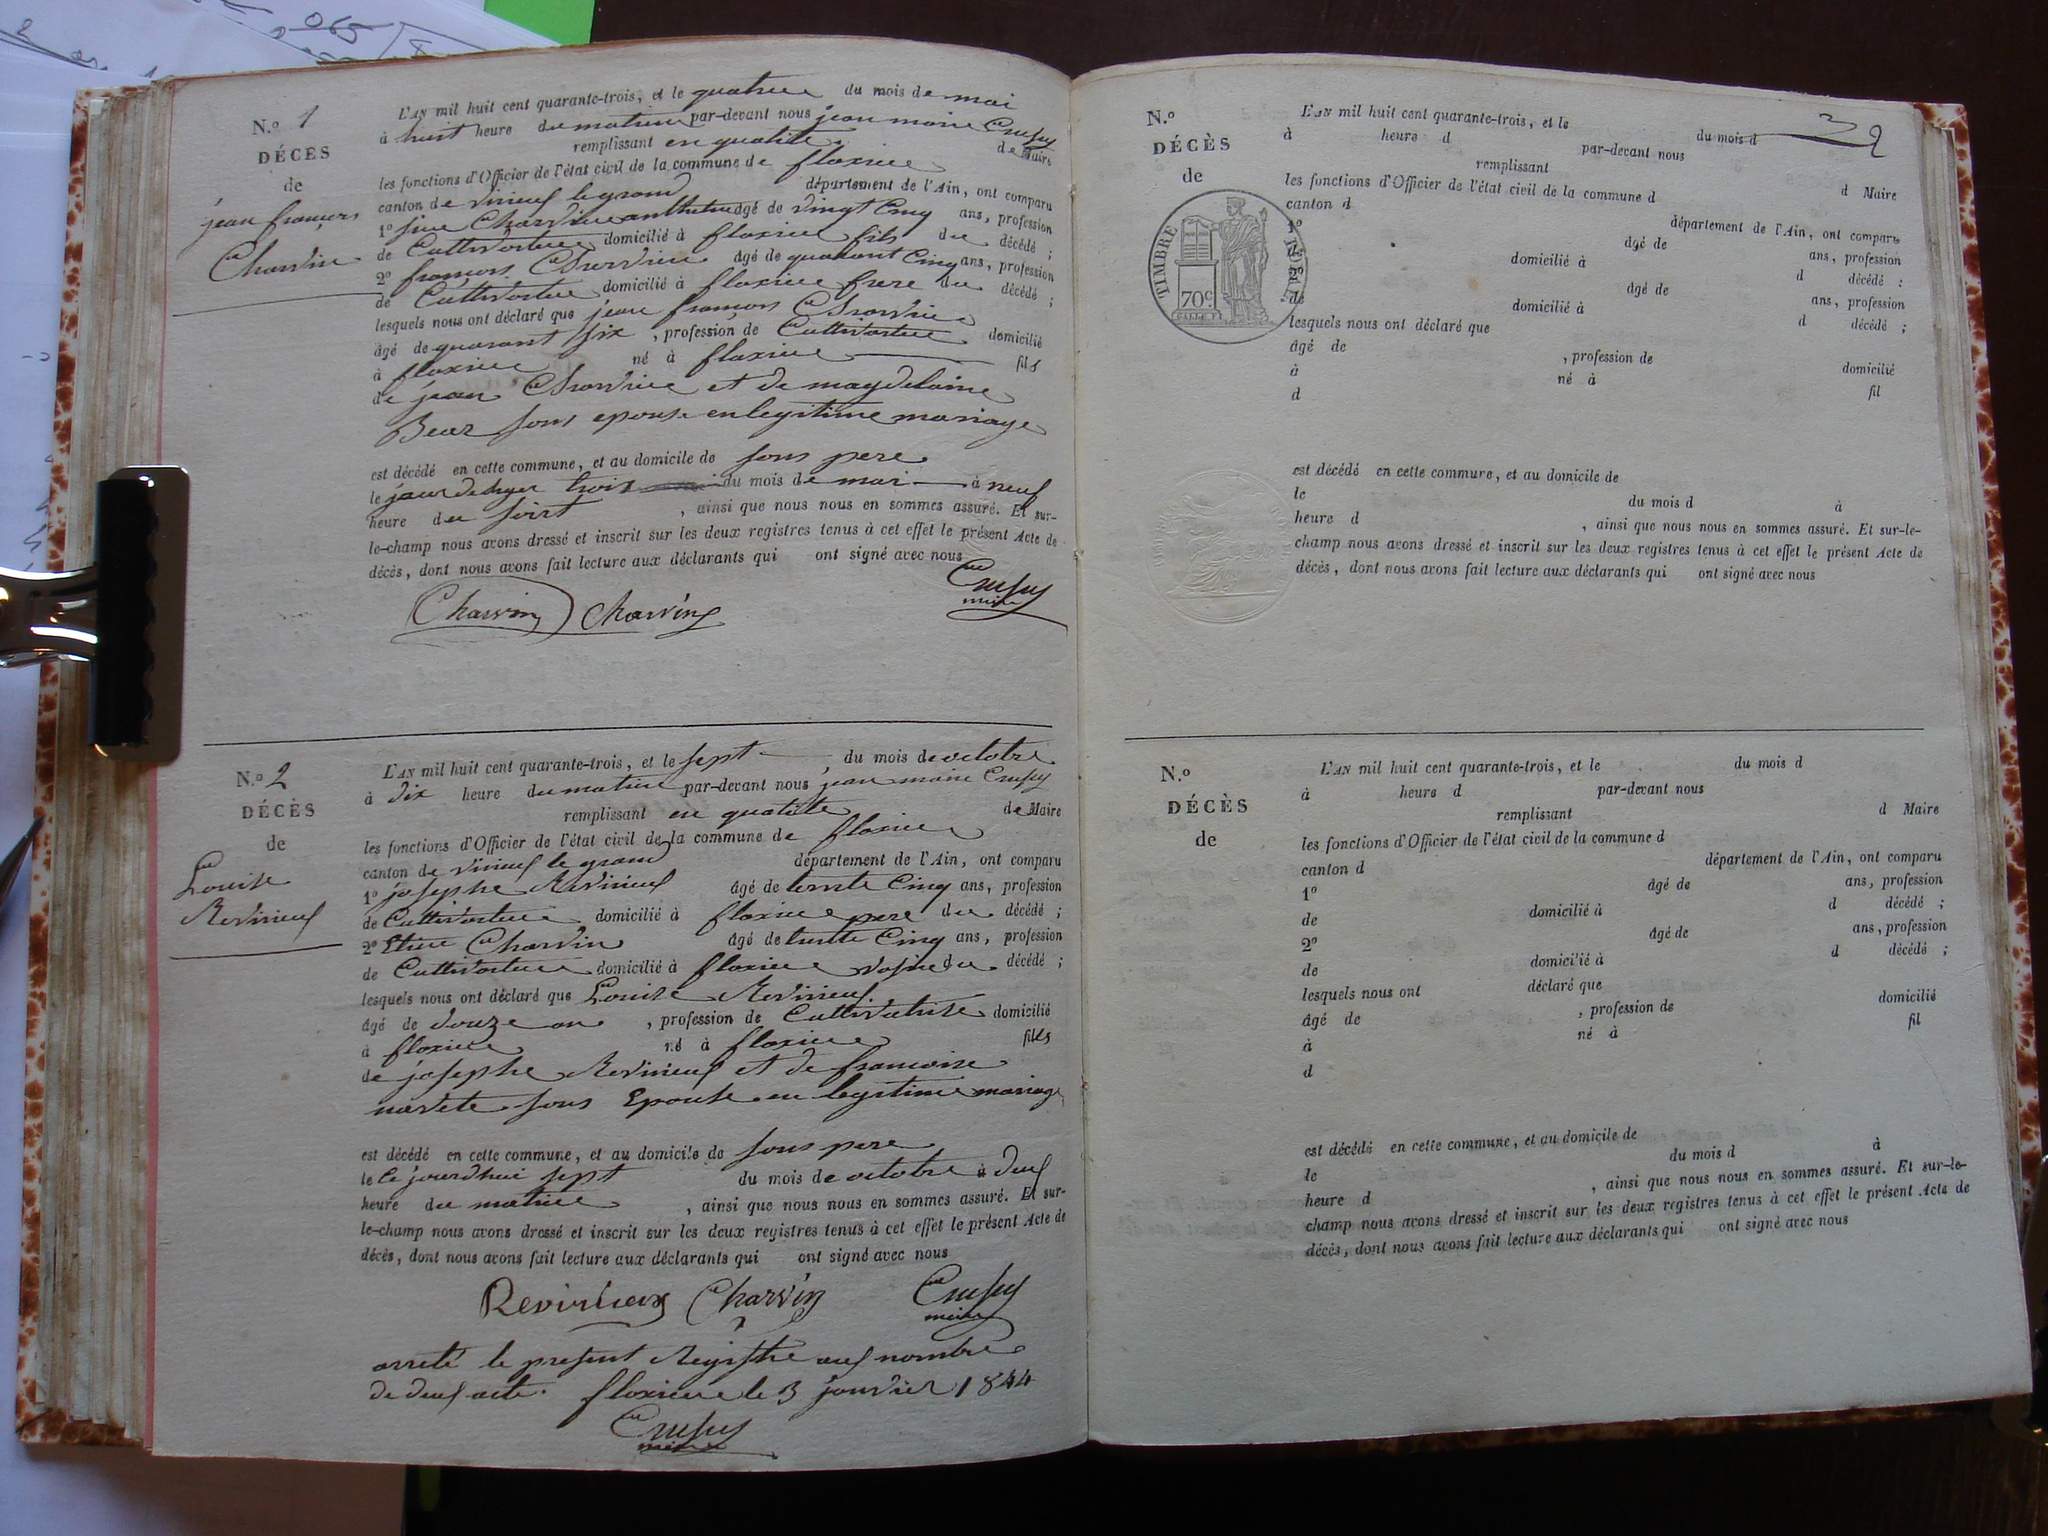 N.o 1
DÉCÈS
de
jean françois
Charvin
L'AN mil huit cent quarante-trois, et le quatrie du mois de mai
à huit heure du matin par-devant nous jean marie Crussy
remplissant en qualite de Maire
les fonctions d'Officier de l'état civil de la commune de floxieu
canton de virieu le grand département de l'Ain, ont comparu
1o Charvin anthelme âgé de vingt Cinq ans, profession
de Cultivateur domicilié à floxieu fils du décédé ;
2o françois Charvin âgé de quarant Cinq ans, profession
de Cultivateur domicilié à floxieu frere du décédé ;
lesquels nous ont déclaré que jean francois Charvin
âgé de quarant six , profession de Cultivateur domicilié
à floxieu né à floxieu fils
de jean Charvin et de magdelaine
Bear sons epouse en legitime mariage
est décédé en cette commune, et au domicile de sons pere
le jour dehyer trois du mois de mai à neuf
heure du soirt , ainsi que nous nous en sommes assuré. Et sur-
le-champ nous avons dressé et inscrit sur les deux registres tenus à cet effet le présent Acte de
décès, dont nous avons fait lecture aux déclarants qui ont signé avec nous
Charvin Charvin Crussy
maire
N.o 2
DÉCÈS
de
Louise
Revirieux
L'AN mil huit cent quarante-trois, et le sept du mois de octobre
à dix heure du matin par-devant nous jean marie Crussy
remplissant en qualite de Maire
les fonctions d'Officier de l'état civil de la commune de floxieu
canton de virieu le grand département de l'Ain, ont comparu
1o josephe Revirieux âgé de trente Cinq ans, profession
de Cultivateur domicilié à floxieu pere du décédé ;
2o Charvin âgé de trentte Cinq ans, profession
de Cultivateur domicilié à floxieu vosin du décédé ;
lesquels nous ont déclaré que Louise Revirieux
âgé de douze an , profession de Cultivatrise domicilié
à floxieu né à floxieu filles
de josephe Revirieux et de francoise
navete sons Epouse en legitime mariage
est décédé en cette commune, et au domicile de sons pere
le Ce jourdhui sept du mois de octobre à deux
heure du matin , ainsi que nous nous en sommes assuré. Et sur-
le-champ nous avons dressé et inscrit sur les deux registres tenus à cet effet le présent Acte de
décès, dont nous avons fait lecture aux déclarants qui ont signé avec nous
Revirieux Charvin Crussy
maire
arreté le present Registre aux nombre
de deux acte. floxieu le 3 janvier 1844
Crussy
maire
2
N.o
DÉCÈS
de
TIMBRE
70c
L'AN mil huit cent quarante-trois, et le du mois d
à heure d par-devant nous
remplissant d Maire
les fonctions d'Officier de l'état civil de la commune d
canton d département de l'Ain, ont comparu
1o âgé de ans, profession
domicilié à d décédé ;
âgé de ans, profession
de domicilié à d décédé ;
lesquels nous ont déclaré que
âgé de , profession de domicilié
à né à fil
d
est décédé en cette commune, et au domicile de
le du mois d à
heure d , ainsi que nous nous en sommes assuré. Et sur-le-
champ nous avons dressé et inscrit sur les deux registres tenus à cet effet le présent Acte de
décès, dont nous avons fait lecture aux déclarants qui ont signé avec nous
N.o
DÉCÈS
de
L'AN mil huit cent quarante-trois, et le du mois d
à heure d par-devant nous
remplissant d Maire
les fonctions d'Officier de l'état civil de la commune d
canton d département de l'Ain, ont comparu
1o âgé de ans, profession
de domicilié à d décédé ;
2o âgé de ans, profession
de domicilié à d décédé ;
lesquels nous ont déclaré que
âgé de , profession de domicilié
à né à fil
d
est décédé en cette commune, et au domicile de
le du mois d à
heure d , ainsi que nous nous en sommes assuré. Et sur-le-
champ nous avons dressé et inscrit sur les deux registres tenus à cet effet le présent Acte de
décès, dont nous avons fait lecture aux déclarants qui ont signé avec nous